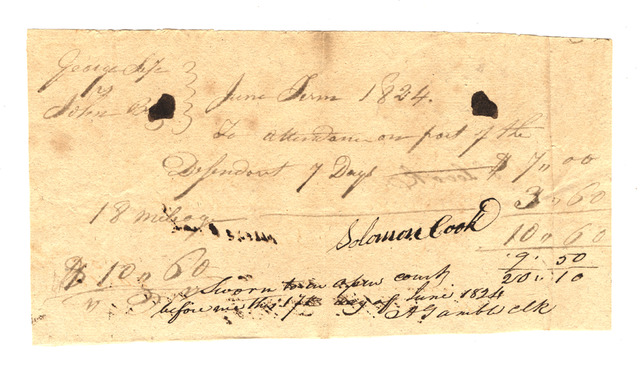 George
vs
John
June Term 1824.
To attendance on part of the
Defendant 7 Days $ 7,, 00
18 mileage 3,, 60
Solomon Cook 10,, 60
9,, 50
$ 10,, 60 20,, 10
Sworn to in open court
before me this day of June 1824
A Gamble Clk